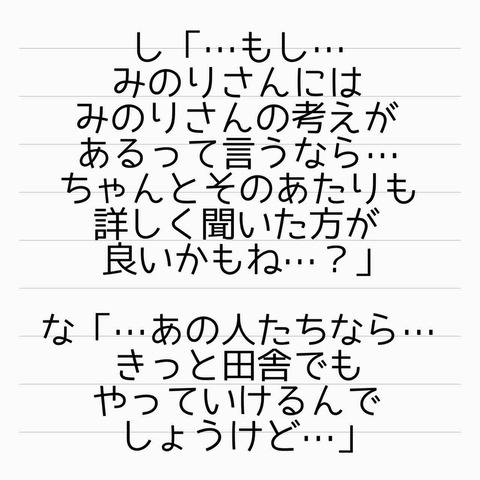 し「…もし…
みのりさんには
みのりさんの考えが
あるって言うなら…
ちゃんとそのあたりも
詳しく聞いた方が
良いかもね…？」
な「…あの人たちなら…
きっと田舎でも
やっていけるんで
しょうけど…」